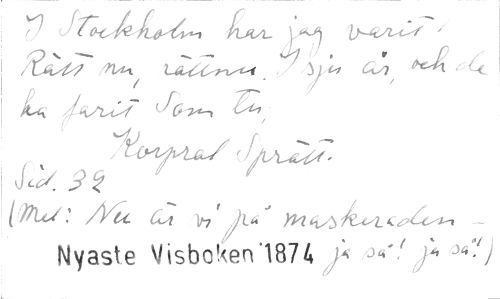 I Stockholm har jag varit!
Rätt nu, rättnu. I sju år, och de
ha farit Som tu,
Korpral Sprätt.
Sid. 32
(Mel: Nu är vi på maskeraden -
Nyaste Visboken 1874 ja så! ja så!)